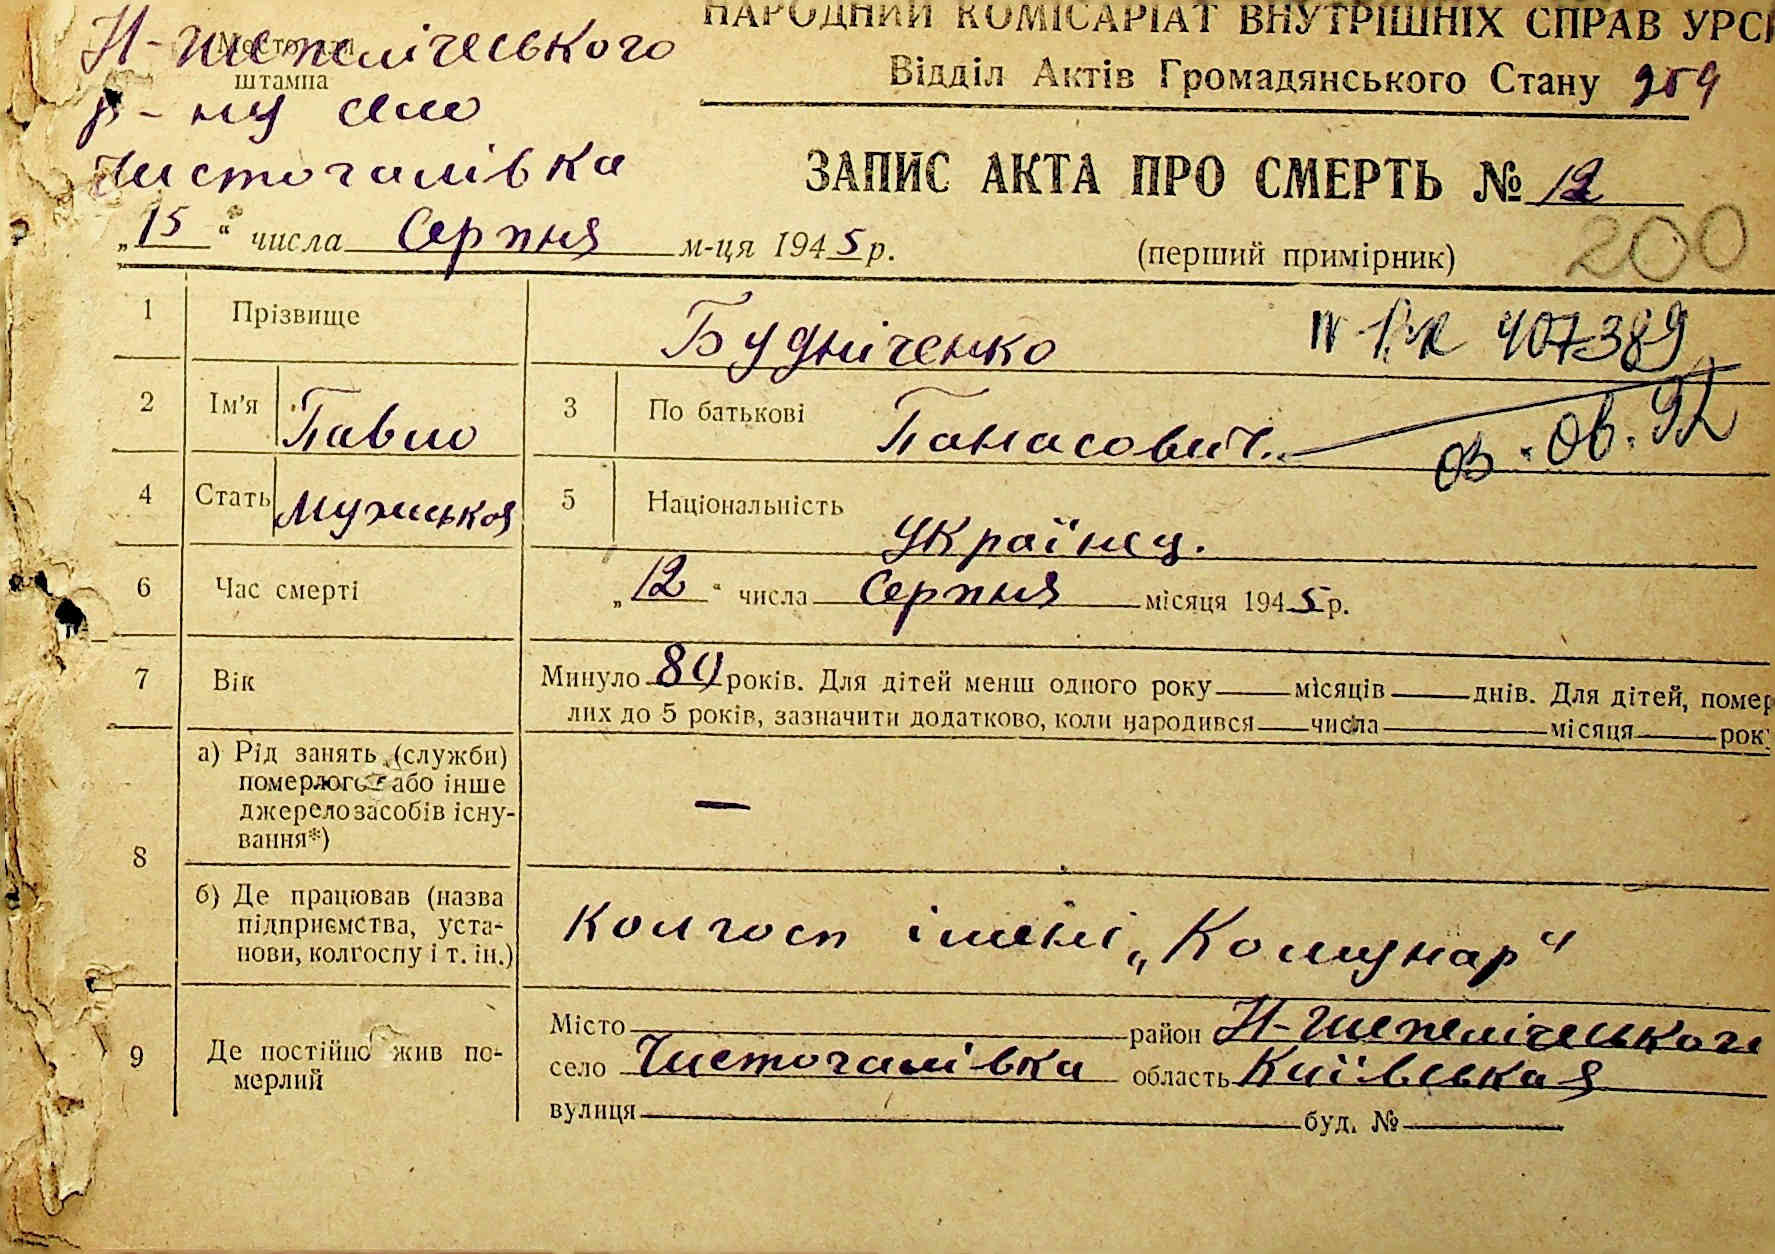 НАРОДНИЙ КОМІСАРІАТ ВНУТРІШНІХ СПРАВ УРСР
Відділ Актів Громадянського Стану 259
Н-Шепелічеського
штампа
р-ну село
Чистогалівка
ЗАПИС АКТА ПРО СМЕРТЬ № 12
„15“ числа Серпня м-ця 1945 р.
(перший примірник) 200
1 Прізвище Будніченко 407389
2 Ім'я Павло 3 По батькові Панасович.
03.06.92
4 Стать мужськоя 5 Національність українец.
6 Час смерті „12“ числа Серпня місяця 1945 р.
7 Вік Минуло 80 років. Для дітей менш одного року місяців днів. Для дітей, помер
лих до 5 років, зазначити додатково, коли народився числа місяця рок
8 а) Рід занять (служби)
померлого або інше
джерело засобів існу-
вання*)
—
б) Де працював (назва
підприємства, уста-
нови, колгоспу і т. ін.)
колгосп імені „Комунар“
9 Де постійно жив по-
мерлий
Місто район Н-Шепелічеського
село Чистогалівка область Київськая
вулиця буд. №